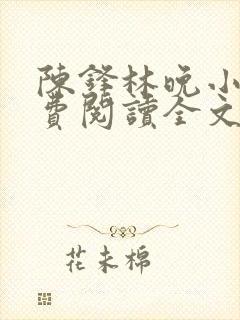 陳鋒林晚小
費閱讀全文
花未棉